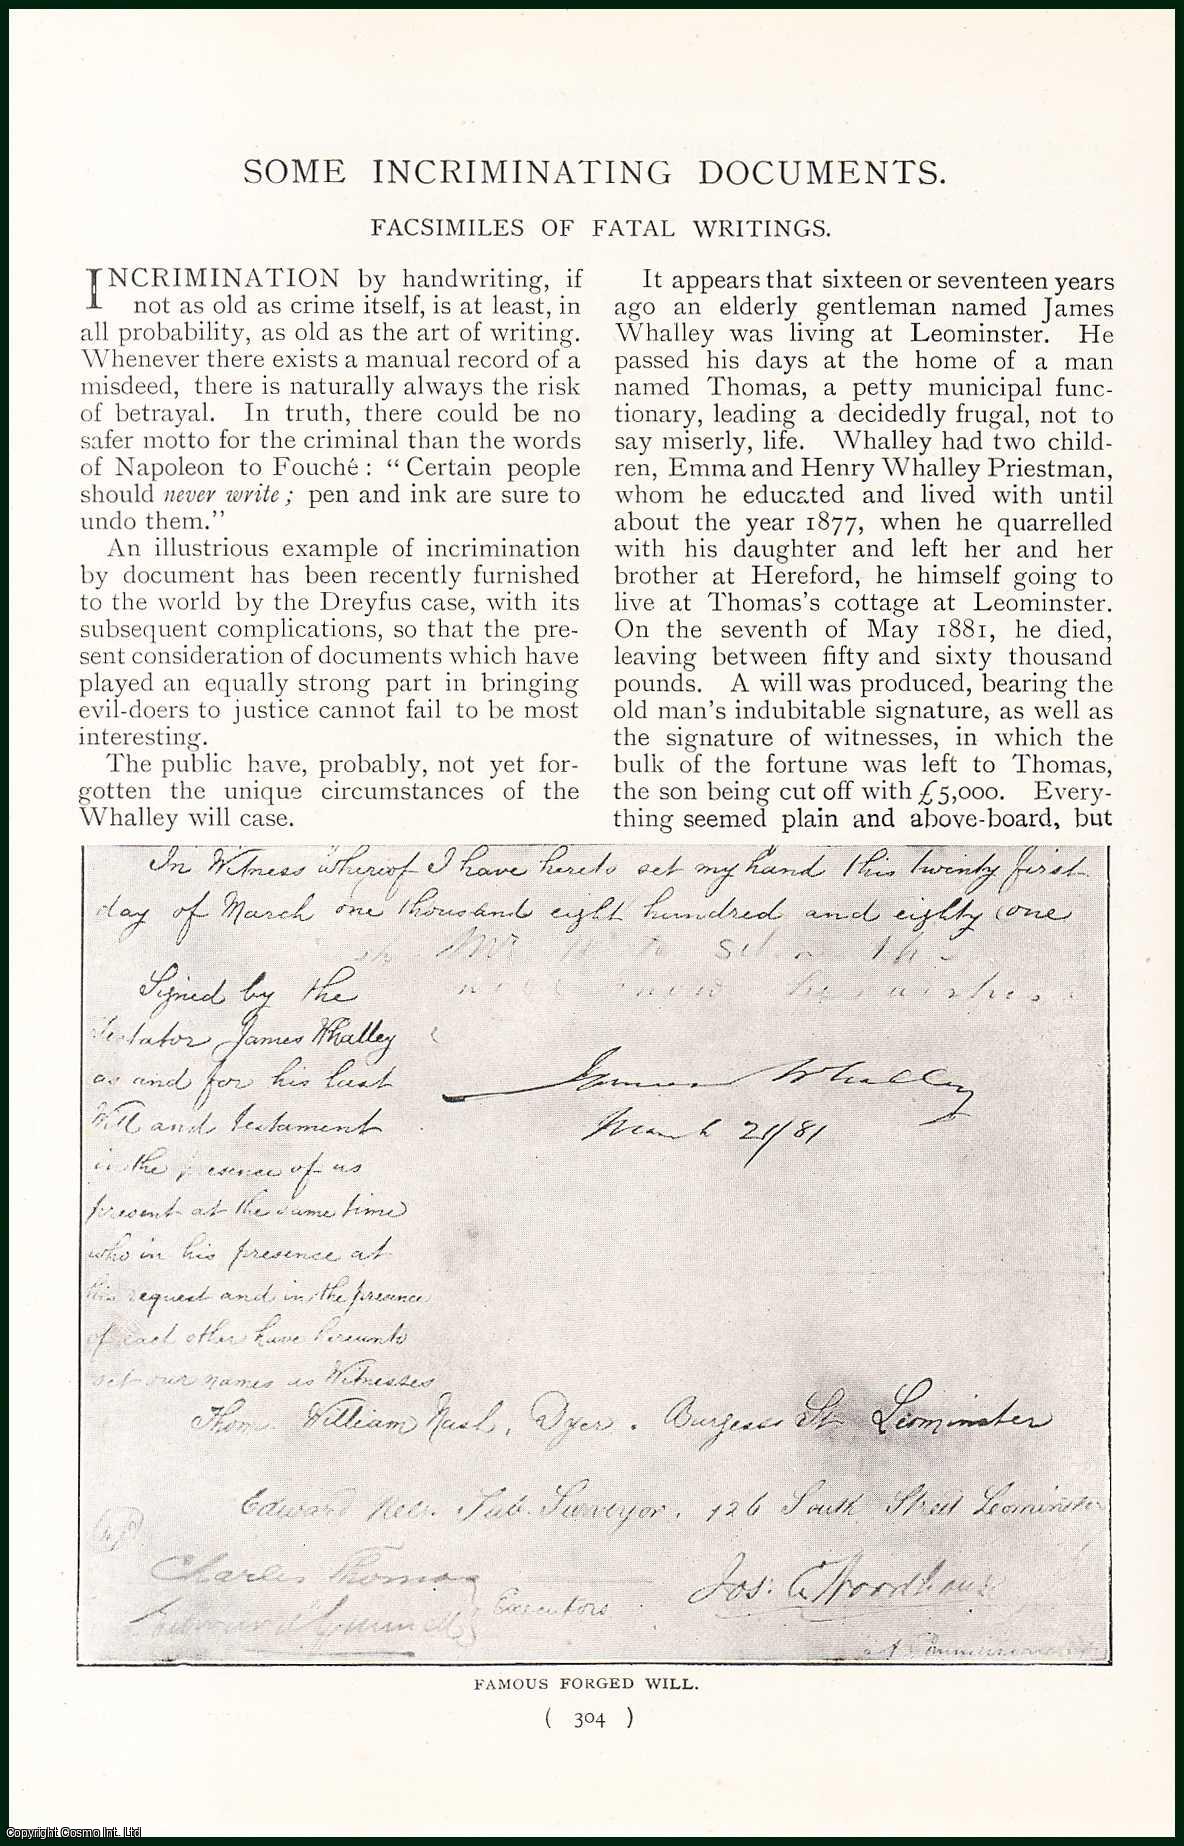 SOME INCRIMINATING DOCUMENTS.
FACSIMILES OF FATAL WRITINGS.
INCRIMINATION by handwriting, if
not as old as crime itself, is at least, in
all probability, as old as the art of writing.
Whenever there exists a manual record of a
misdeed, there is naturally always the risk
of betrayal. In truth, there could be no
safer motto for the criminal than the words
of Napoleon to Fouché: "Certain people
should never write; pen and ink are sure to
undo them."
An illustrious example of incrimination
by document has been recently furnished
to the world by the Dreyfus case, with its
subsequent complications, so that the pre-
sent consideration of documents which have
played an equally strong part in bringing
evil-doers to justice cannot fail to be most
interesting.
The public have, probably, not yet for-
gotten the unique circumstances of the
Whalley will case.
It appears that sixteen or seventeen years
ago an elderly gentleman named James
Whalley was living at Leominster. He
passed his days at the home of a man
named Thomas, a petty municipal func-
tionary, leading a decidedly frugal, not to
say miserly, life. Whalley had two child-
ren, Emma and Henry Whalley Priestman,
whom he educated and lived with until
about the year 1877, when he quarrelled
with his daughter and left her and her
brother at Hereford, he himself going to
live at Thomas's cottage at Leominster.
On the seventh of May 1881, he died,
leaving between fifty and sixty thousand
pounds. A will was produced, bearing the
old man's indubitable signature, as well as
the signature of witnesses, in which the
bulk of the fortune was left to Thomas,
the son being cut off with £5,000. Every-
thing seemed plain and above-board, but
In Witness Whereof I have hereto set my hand this twenty first
day of March one thousand eight hundred and eighty one
Signed by the
Testator James Whalley
as and for his last
Will and Testament
in the presence of us
present at the same time
who in his presence at
his request and in the presence
of each other have hereunto
set our names as Witnesses
James Whalley
March 21/81
Thom. William Nash, Dyer. Burgess St Leominster
Edward Surveyor. 126 South Street Leominster
Charles Thomas
Executors
Jos: Woodhouse
FAMOUS FORGED WILL.
( 304 )
Copyright Cosmo Int. Ltd